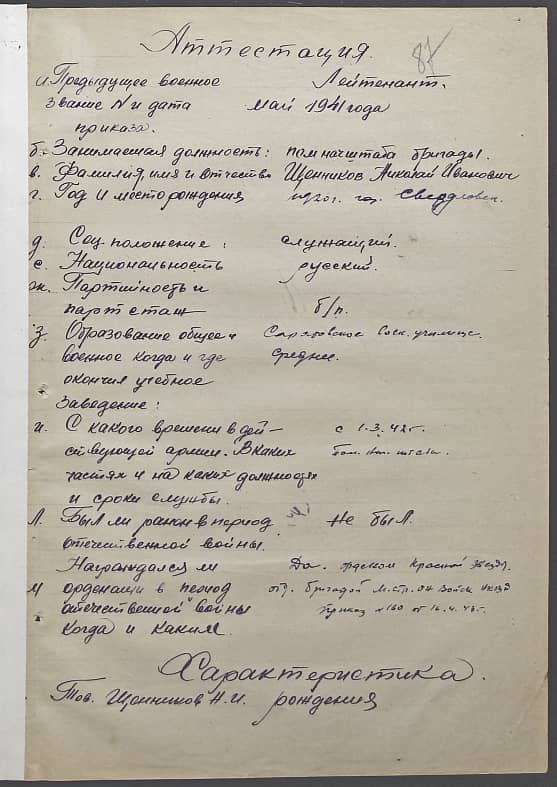 Аттестация.
87
а. Предыдущее военное Лейтенант.
звание № и дата май 1941 года
приказа.
б. Занимаемая должность: пом начштаба бригады.
в. Фамилия, имя и отчество Щенников Николай Иванович
г. Год и место рождения гор. Свердловск.
д. Соц. положение: служащий.
е. Национальность русский.
ж. Партийность и
парт стаж б/п.
з. Образование общее и Саратовское училище.
военное когда и где среднее.
окончил учебное
заведение:
и. С какого времени в дей- с 1.3.42 г.
ствующей армии. В каких пом. нач. штаба.
частях и на каких должностях
и сроки службы.
Л. Был ли ранен в период Не был.
отечественной войны.
Награждался ли Да. орденом Красной Звезды.
М орденами в период бригадой войск НКВД
отечественной войны приказ №160 от 16.4.43 г.
когда и каким.
Характеристика.
Тов. Щенников Н.И. рождения